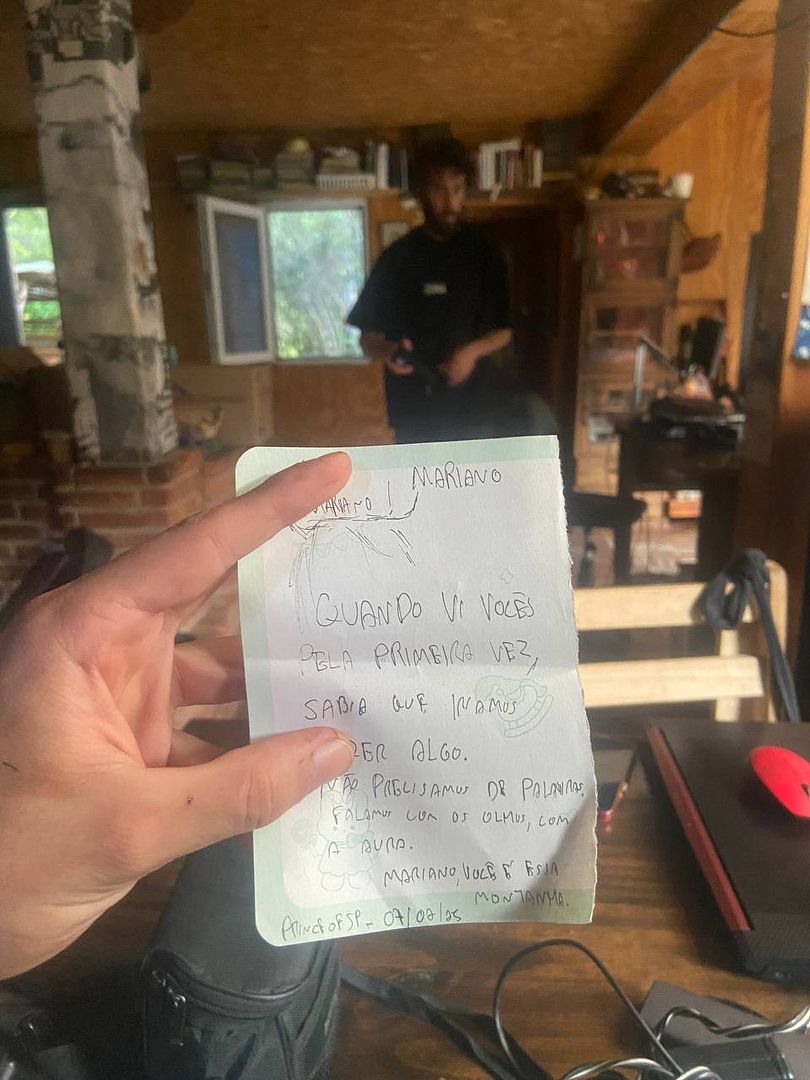 MARIANO
MARIANO!
QUANDO VI VOCÊS
PELA PRIMEIRA VEZ,
SABIA QUE IRIAMOS
ZER ALGO.
NÃO PRECISAMOS DE PALAVRAS.
FALAMOS COM OS OLHOS, COM
A AURA.
MARIANO, VOCÊ É ESSA
MONTANHA.
07/02/25